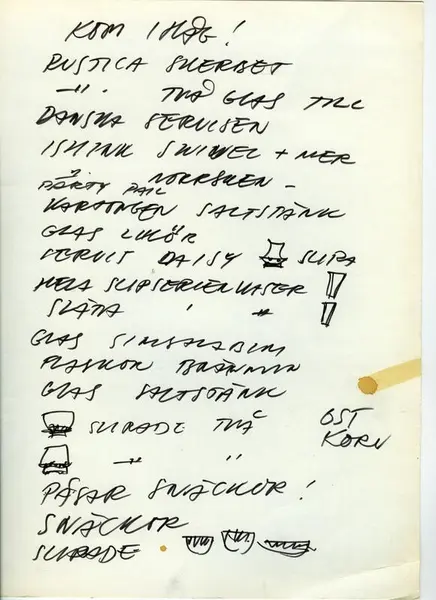 KOM IHÅG!
RUSTICA SHERBET
—"— TVÅ GLAS TILL
DANSKA SERVISEN
ISHINK SWIWEL + MER
PARTY PAIL NORRSKEN —
KARTONGEN SALTSTÄNK
GLAS LIKÖR
SERVIS DAISY SLIPA
HELA SLIPSERIEN VASER
SLÄTA ' "
GLAS SIMSALABIM
FLASKOR BRÄNNVIN
GLAS SALTSTÄNK
SLIPADE TVÅ
OST
KORV
—"— "
PÅSAR SNÄCKOR!
SNÄCKOR
SLIPADE